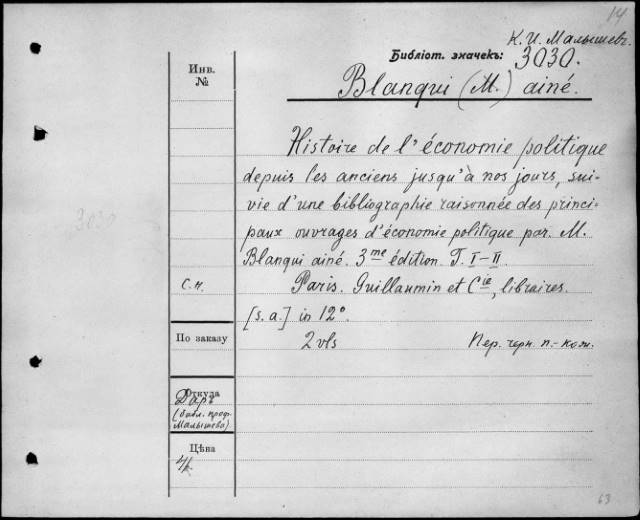 14
К. И. Малышевъ.
Библіот. значекъ: 3030.
Инв.
№
Blanqui (M.) ainé.
Histoire de l'économie politique
depuis les anciens jusqu'à nos jours, sui-
vie d'une bibliographie raisonnée des princi-
paux ouvrages d'économie politique par. M.
Blanqui ainé. 3me édition. T. I-II.
3030
С.н.
Paris. Guillaumin et Cie, libraires.
[s. a.] in 12°.
По заказу
2 vls
Пер. черн. п.-кож.
Откуда
Даръ
(библ. проф.
Малышева)
Цѣна
63